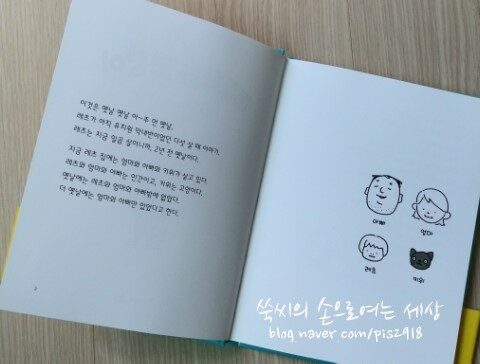 이것은 옛날 옛날 아~주 먼 옛날,
레츠가 아직 유치원 막내반이었던 다섯 살 때 이야기.
레츠는 지금 일곱 살이니까, 2년 전 옛날이다.
지금 레츠 집에는 엄마와 아빠와 키위가 살고 있다.
레츠와 엄마와 아빠는 인간이고, 키위는 고양이다.
옛날에는 레츠와 엄마와 아빠밖에 없었다.
더 옛날에는 엄마와 아빠만 있었다고 한다.
2
아빠
엄마
레츠
키위
쑥씨의 손으로여는 세상
blog.naver.com/pis2918